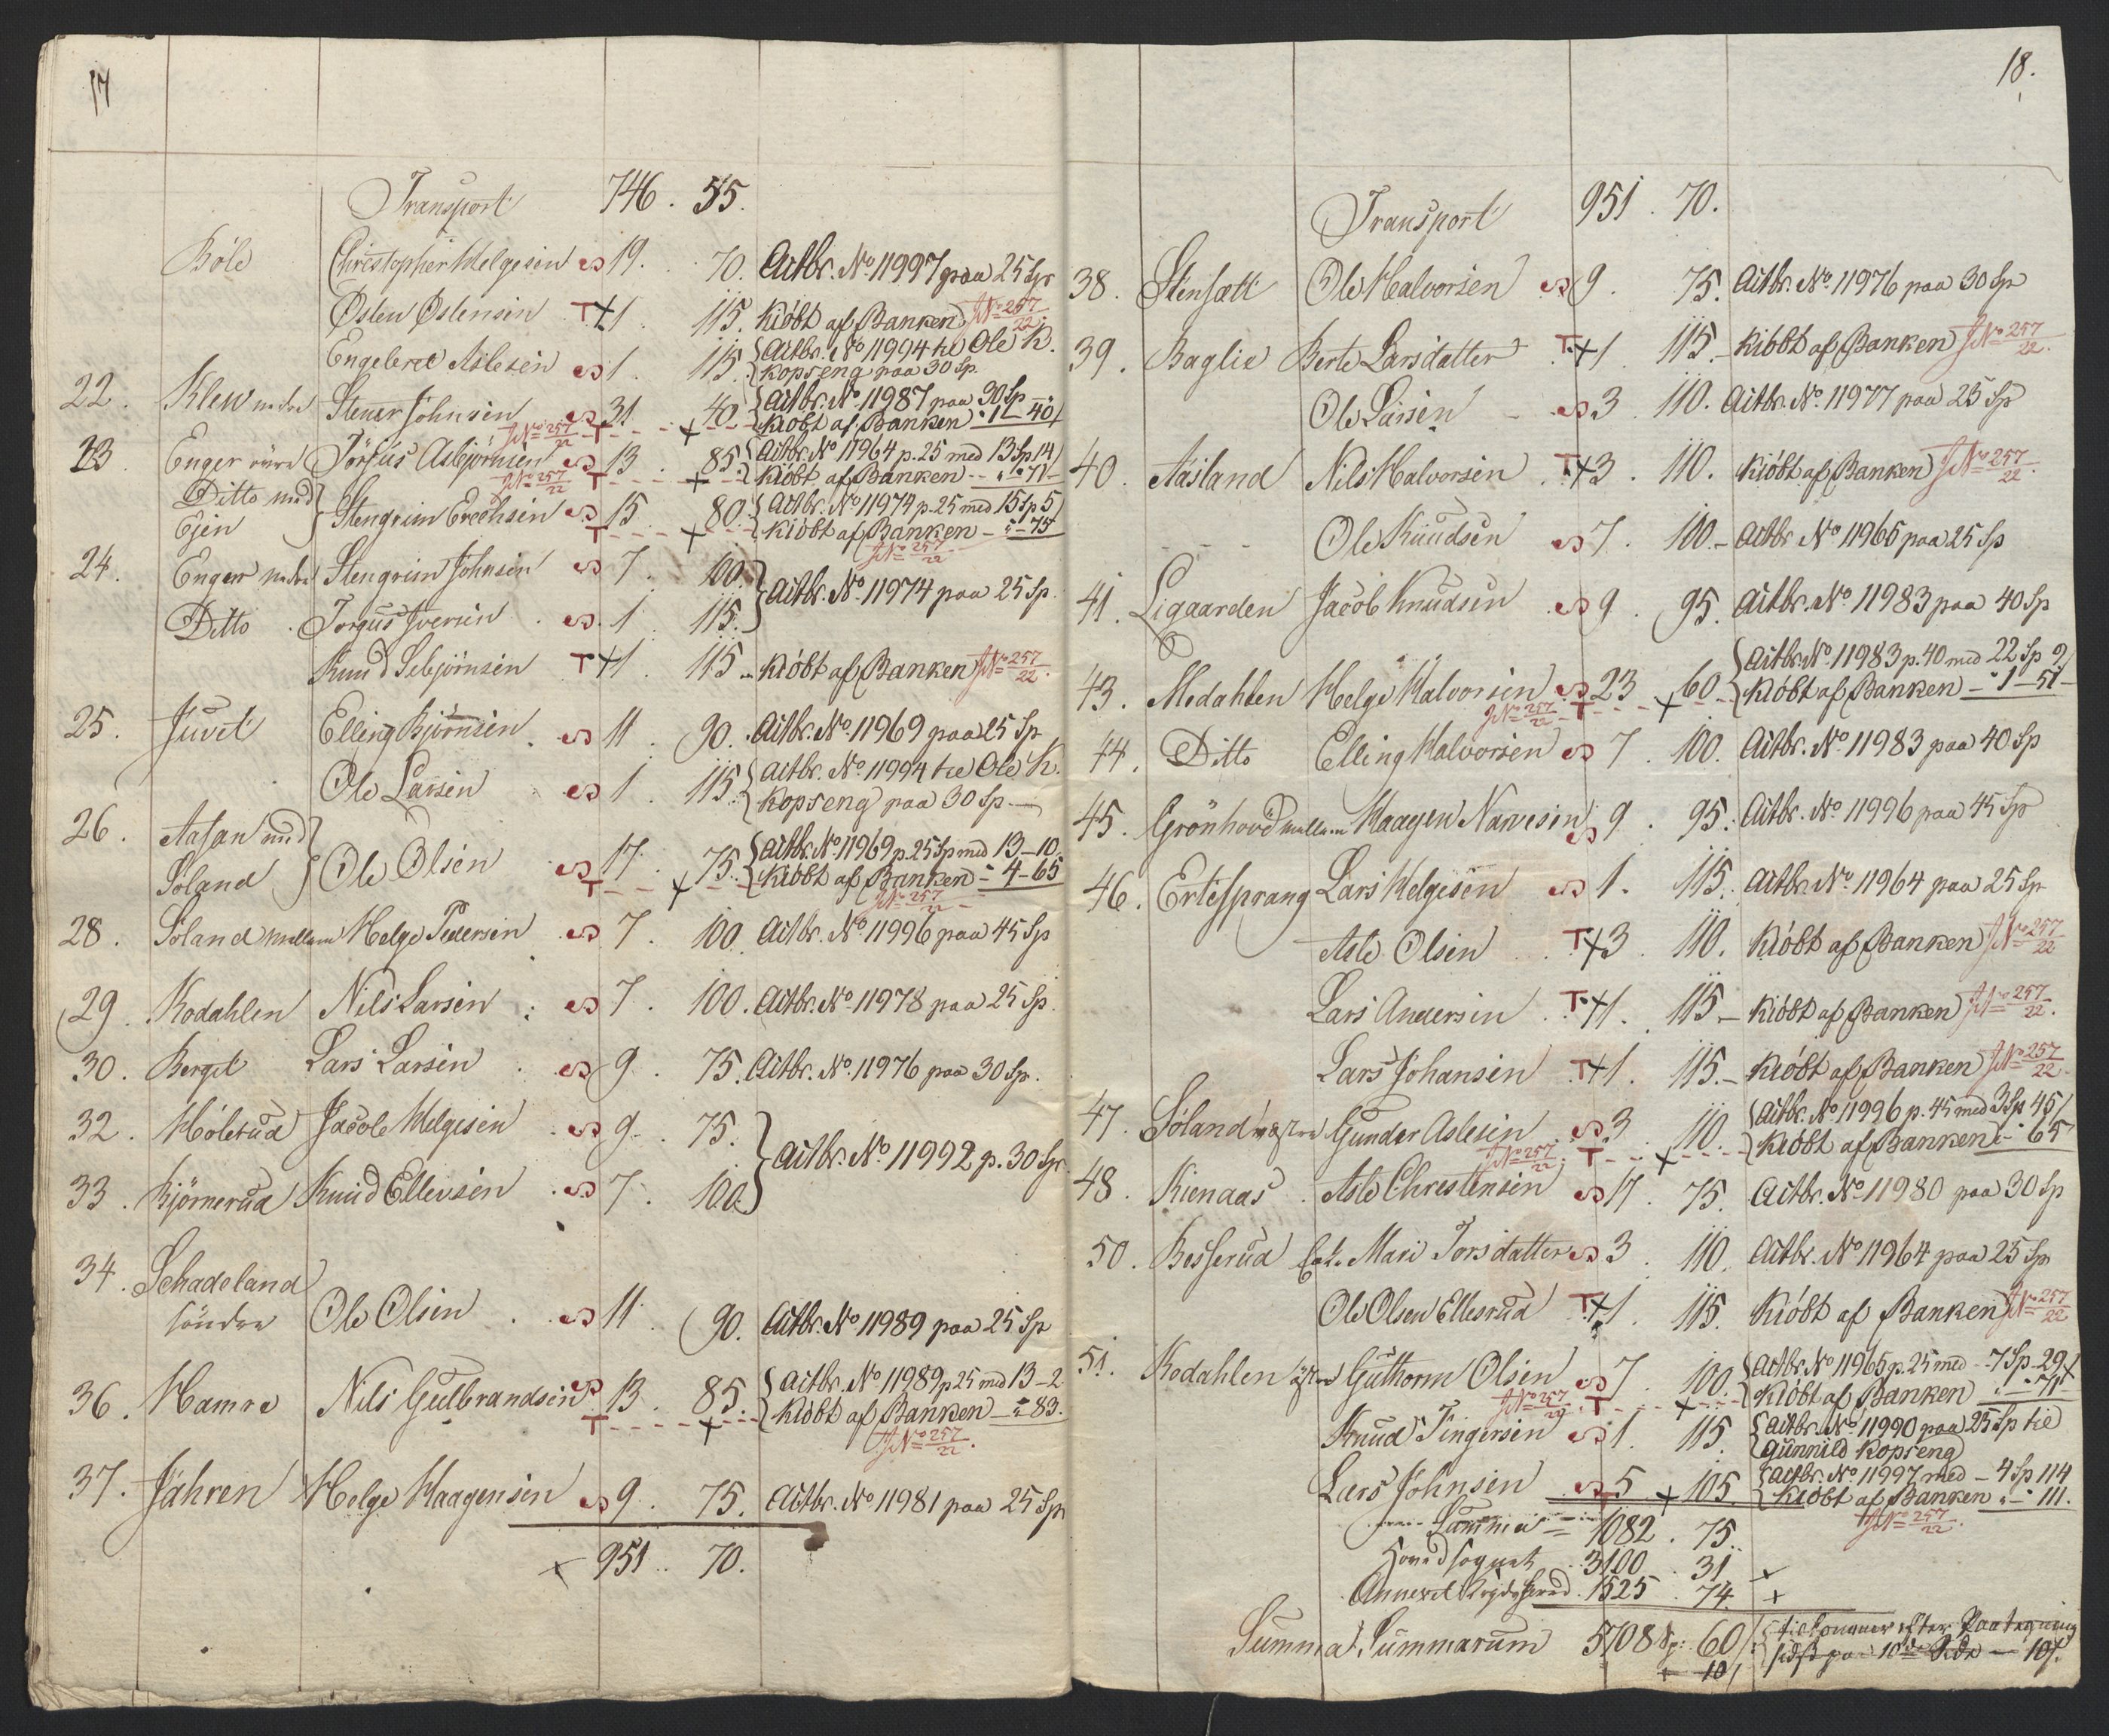 17
Transport 746 . 55.
Böle Christopher Helgesen 19. 70. Actbr. No 11997 paa 25 Sp
Østen Østensen T+1 115. Kiöbt af Banken JNo 257/22.
Engebret Aslesen 1. 115. {Actbr. No 11994 til Ole K. Kopseng paa 30 Sp.
22. Klew nedre Stener Johnsen 31. 40. {Actbr. No 11987 paa 30 Sp
JNo 257/22 T + Kiöbt af Banken - 1 - 40/
23. Enger øvre Törgus Asbjörnsen 13. 85. {Actbr. No 11964 p. 25 med 13 Sp 14/
JNo 257/22 T + Kiöbt af Banken - " - 71
Ditto med Ejen } Stengrim Erechsen 15 80. {Actbr. No 11974 p. 25 med 15 Sp 5/
T + Kiöbt af Banken - " - 75
JNo 257/22
24. Enger nedre Stengrim Johnsen 7. 100. } Actbr. No 11974 paa 25 Sp.
Ditto Torgus Iversen 1. 115.
Knud Sebjörnsen T+1. 115 - Kiöbt af Banken JNo 257/22.
25. Juvet Elling Bjørnsen 11. 90. Actbr. No 11969 paa 25 Sp
Ole Larsen 1. 115. {Actbr. No 11994 til Ole K. Kopseng paa 30 Sp -
26. Aasan med Söland } Ole Olsen 17. 75. {Actbr. No 11969 p. 25 Sp med 13 - 10.
T + Kiöbt af Banken - 4 - 65
JNo 257/22
28. Söland mellem Helge Pedersen 7. 100. Actbr. No 11996 paa 45 Sp
29. Kodahlen Nils Larsen 7. 100. Actbr. No 11978 paa 25 Sp.
30. Berget Lars Larsen 9. 75. Actbr. No 11976 paa 30 Sp.
32. Hölerud Jacob Helgesen 9. 75. } Actbr. No 11992 p. 30 Sp.
33. Bjørnerud Knud Ellevsen 7. 100
34. Schadeland
söndre Ole Olsen 11. 90. Actbr. No 11989 paa 25 Sp
36. Hamre Nils Gulbrandsen 13. 85. {Actbr. No 11989 p 25 med 13 - 2
T + Kiöbt af Banken - " 83.
JNo 257/22.
37. Jahren Helge Haagensen 9. 75. Actbr. No 11981 paa 25 Sp
+ 951. 70.
18.
Transport 951. 70.
38. Stensætt Ole Halvorsen 9. 75. Actbr. No 11976 paa 30 Sp
39. Baglie Berte Larsdatter T+1 115. Kiöbt af Banken JNo 257/22.
Ole Larsen 3. 110. Actbr. No 11977 paa 25 Sp
40. Aasland Nils Halvorsen T+3. 110. Kiöbt af Banken JNo 257/22.
Ole Knudsen 7. 100. - Actbr No 11965 paa 25 Sp
41. Ligaarden Jacob Knudsen 9. 95. Actbr. No 11983 paa 40 Sp
43. Medahlen Helge Halvorsen 23 60. {Actbr. No 11983 p. 40 med 22 Sp 9/
JNo 257/22 T + Kiöbt af Banken - 1 - 51
44. Ditto Elling Halvorsen 7. 100. Actbr. No 11983 paa 40 Sp
45. Grönhovd mellem Haagen Narvesen 9. 95. Actbr. No 11996 paa 45 Sp
46. Ertesprang Lars Helgesen 1. 115. Actbr. No 11964 paa 25 Sp
Asle Olsen T+3. 110. Kiöbt af Banken JNo 257/22
Lars Andersen T+1. 115. - Kiöbt af Banken JNo 257/22.
Lars Johansen T+1. 115. - Kiöbt af Banken JNo 257/22.
47. Söland Gunder Aslesen 3 110. {Actbr. No 11996 p. 45 med 3 Sp 45/
JNo 257/22 T + Kiöbt af Banken - " 65
48. Kienaas Asle Chrestensen 17. 75. Actbr. No 11980 paa 30 Sp
50. Besserud Enk. Mari Torsdatter 3. 110. Actbr. No 11964 paa 25 Sp
Ole Olsen Ellesrud T+1. 115. Kiöbt af Banken JNo 257/22
51. Kodahlen Guthorm Olsen 7. 100. {Actbr. No 11965 p. 25 med - 7 Sp - 29/
JNo 257/22 T + Kiöbt af Banken " - 71
Knud Tingersen 1. 115. {Actbr. No 11990 paa 25 Sp til Gunnild Kopseng
Lars Johnsen 5 + 105. {Actbr. No 11997 med - 4 Sp 114
Kiöbt af Banken " - 111.
JNo 257/22.
Summa 1082. 75.
Hovedsognet 3100. 31 +
Annexet 1525. 74. +
Summa Summarum 5708 Sp: 60/ tilkommer efter Paategning
+ 10/ sidst paa 10de Side - 10/.